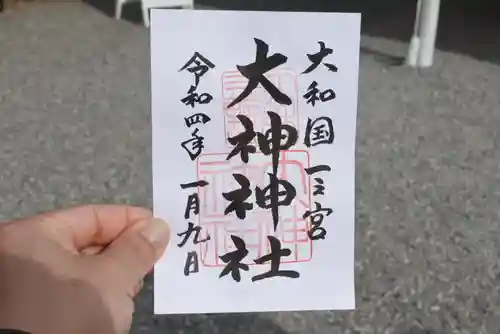 大和国一之宮
大神神社
令和四年
一月九日